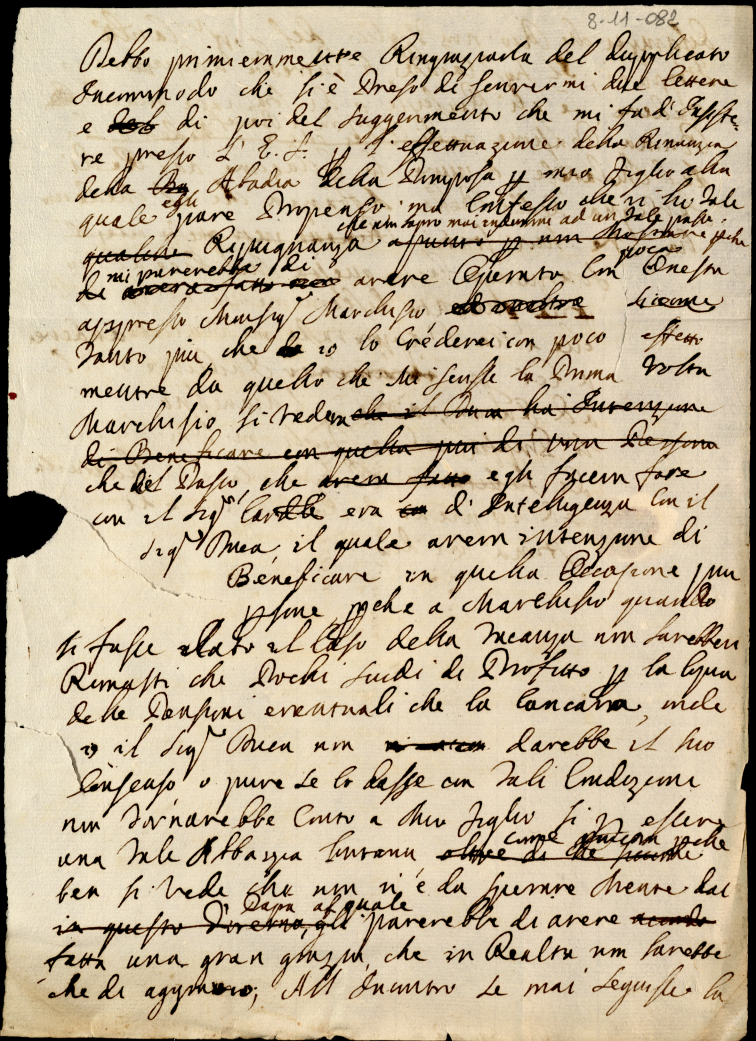 8-11-082
Debbo primieramente Ringraziarla del duplicato
Incommodo che si è Preso di scrivermi due lettere
e di poi del suggerimento che mi fa d'Insiste-
re presso S. E. S. p l'effettuazione della Rinunzia
della Abadia della p mio figlio alla
quale egli pare Propenso ma Confesso che vi ho tale
che non saprò mai indurmi ad un tale passo
qualche Ripugnanza p non
mi parerebbe di avere Operato Con poca Onestà
appresso Monsig.r Marchisio siccome
tanto più che io lo Crederei con poco effetto
mentre da quello che mi scrisse la Prima Volta
Marchisio si vede che il Buca ha Intenzione
di Beneficare con quella più di una Persona
che del Passo, che avea fatto egli facea fare
con il Sig.r Card.le era d'Intelligenza Con il
Sig.r Buca, il quale avea intenzione di
Beneficare in quella Occasione più
psone pche a Marchisio quando
si fusse dato il Caso della Vacanza non sarebbero
Rimasti che Pochi scudi di Profitto p la
delle Pensioni eventuali che la Caricano, onde
o il Sig.r Buca non darebbe il suo
Consenso o pure se lo dasse con tali Condizioni
non tornarebbe Conto a Mio figlio si p essere
una tale Abbazia lontana come pche
ben si vede che non vi è da sperare Niente dal
Papa al quale
in questo Diverso, gli parerebbe di avere
fatta una gran grazia, che in Realtà non sarebbe
che di aggravio; All'Incontro se mai seguisse la